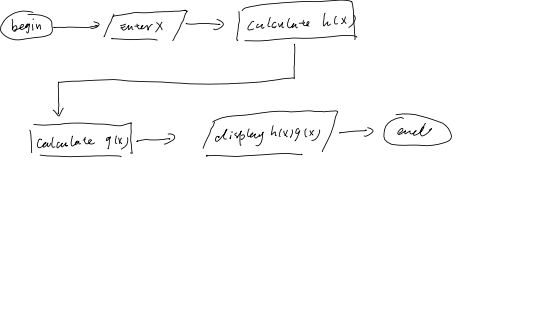 begin
enter x
calculate h(x)
calculate g(x)
display h(x) g(x)
end